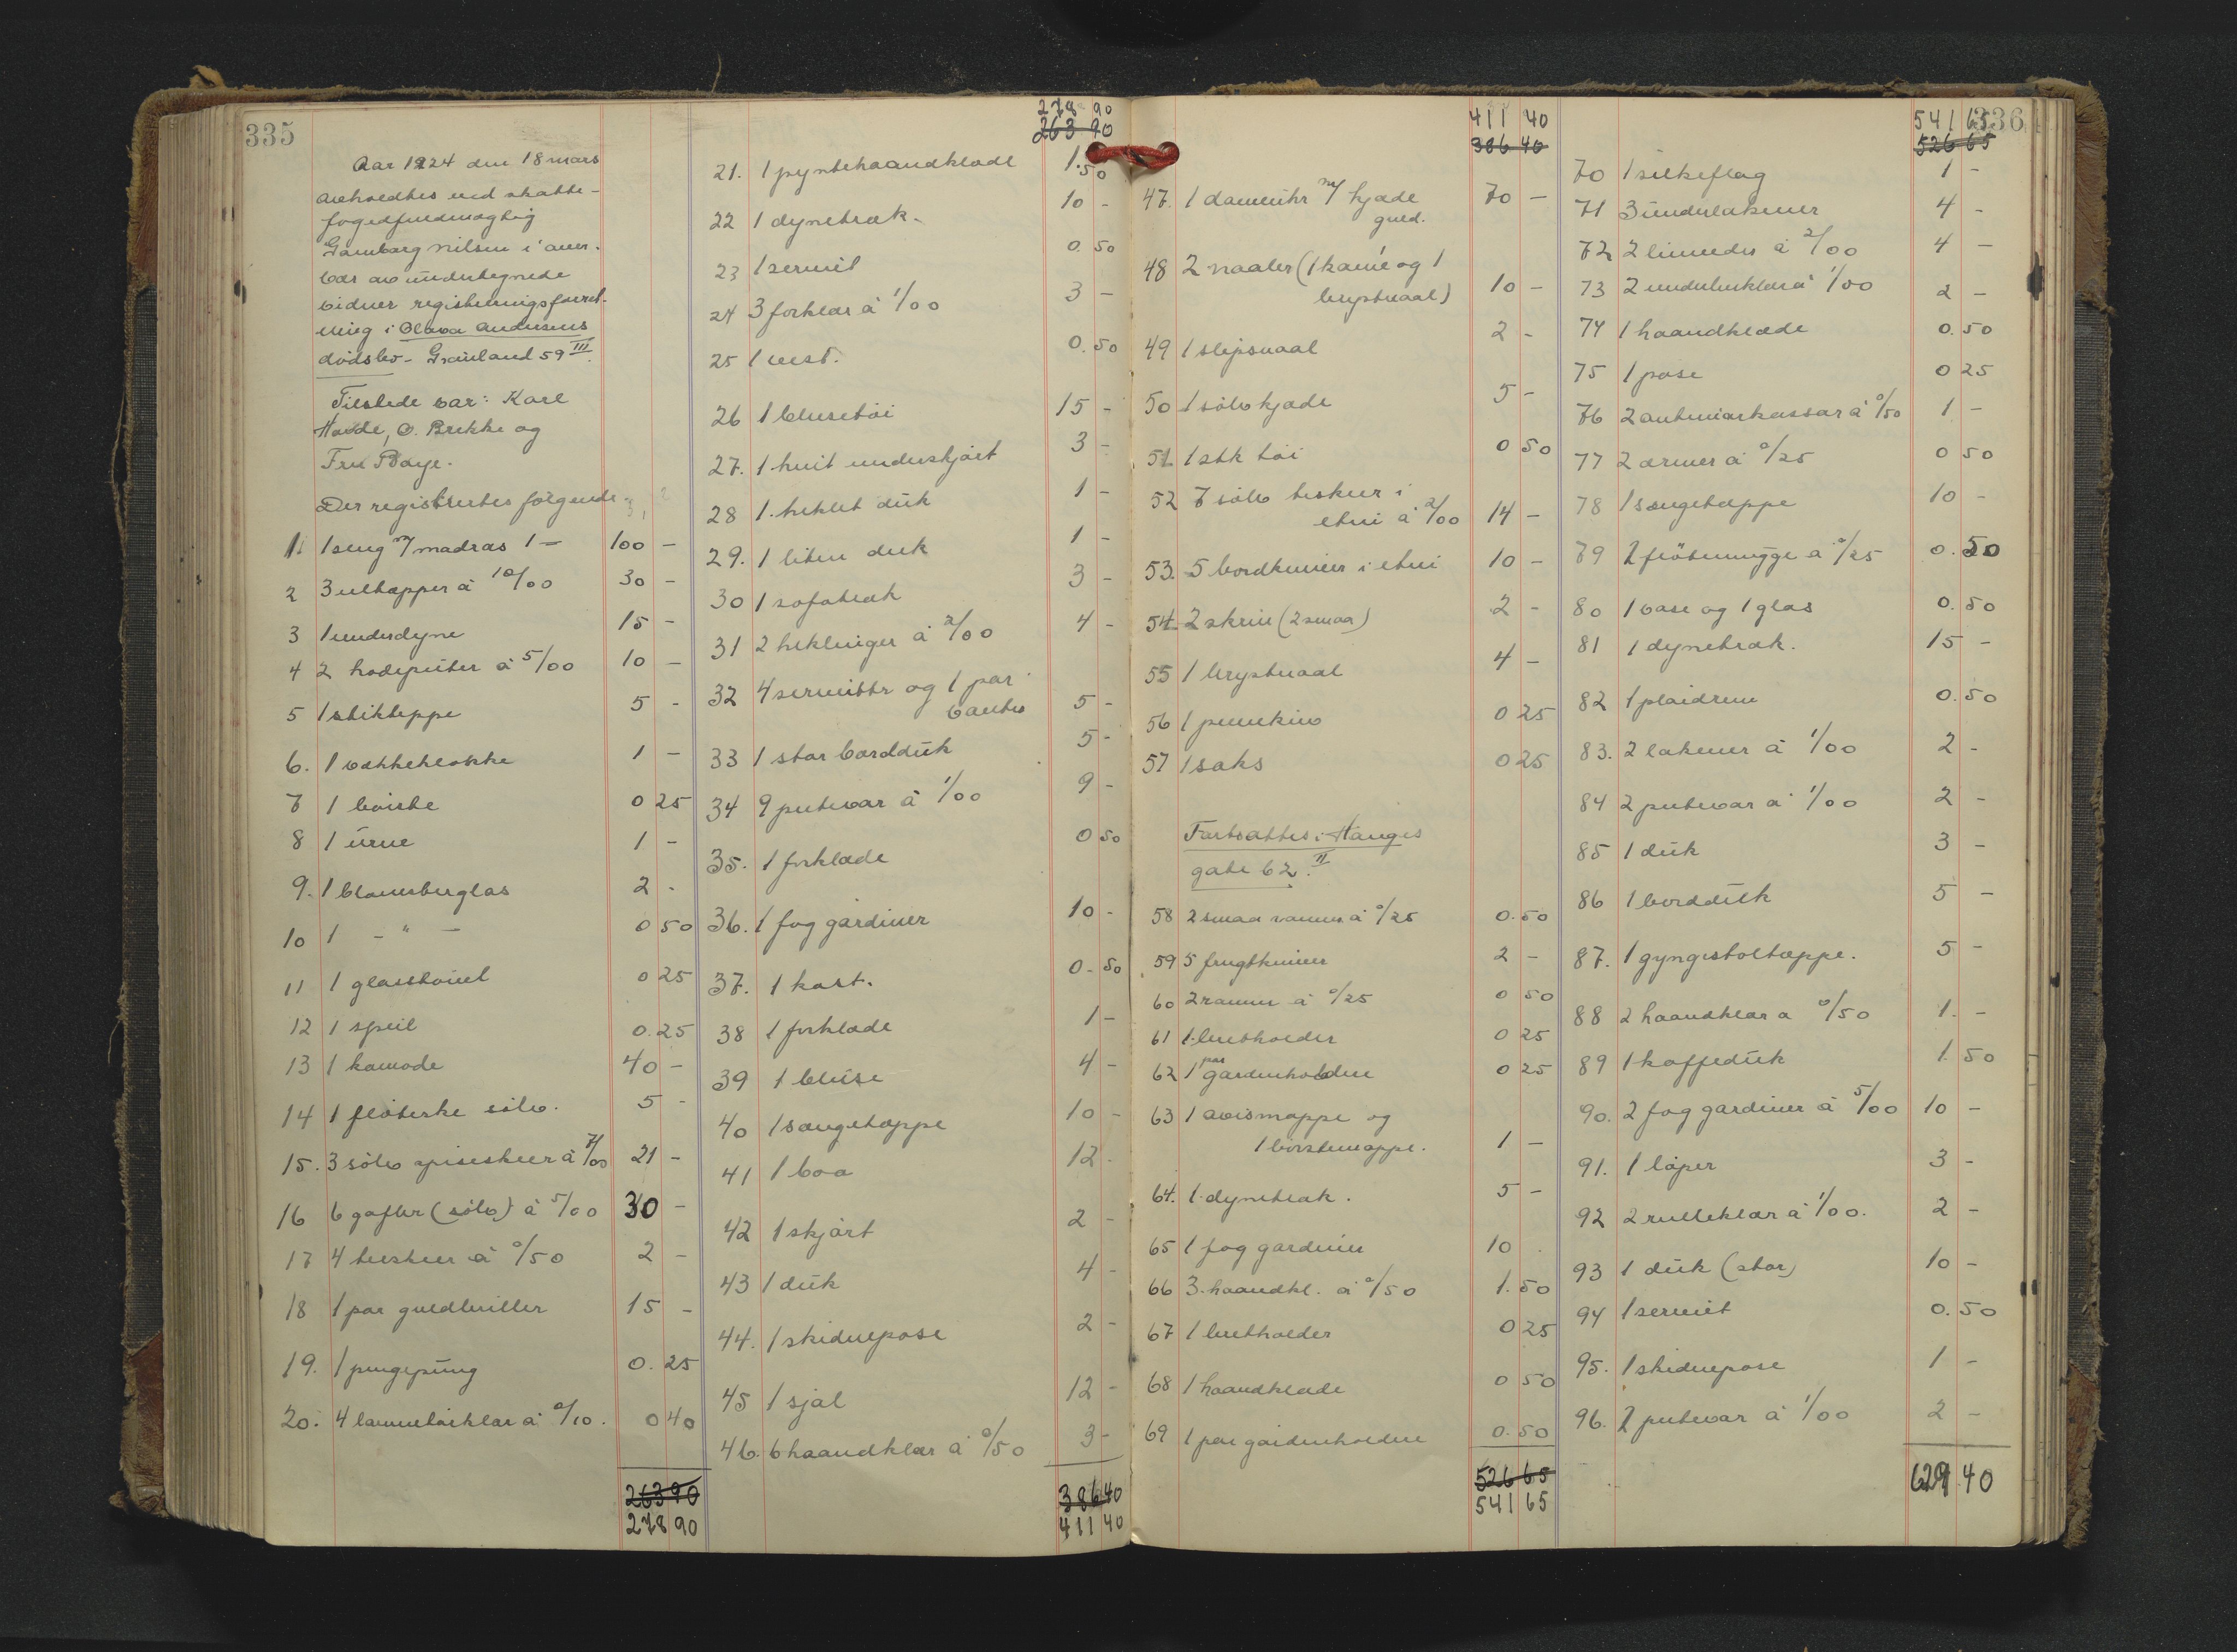 335
Aar 1924 den 18 mars
avholdtes ved skatte-
fogedfuldmægtig
Gamborg Nilsen i over-
vær av undertegnede
vidner registreringsforret-
ning i Olava Andersens
dødsbo - Grønland 59 III.
Tilstede var: Karl
Hovde, O. Brekke og
Fru Baye.
Der registrertes følgende
1. 1 seng m/ madras 1 — 100 -
2 3 ultæpper à 10/00 30 -
3 1 underdyne 15 -
4 2 hodeputer à 5/00 10 -
5 1 stikteppe 5 -
6. 1 vækkeklokke 1 -
7 1 børste 0 25
8 1 urne 1 -
9. 1 blomsterglas 2 -
10 1 - " - 0 50
11 1 glasstøiel 0 25
12 1 speil 0.25
13 1 komode 40 -
14 1 fløteske sølv. 5 -
15. 3 sølv spiseskeer à 7/00 21 -
16 6 gafler (sølv) à 5/00 30 -
17 4 teskeer à 0/50 2 -
18 1 par guldbriller 15 -
19. 1 pengepung 0.25
20. 4 lommetørklær à 0/10. 0 40
263 90
278 90
278 90
263 90
21. 1 pyntehaandklæde 1.50
22 1 dynetræk - 10 -
23 1 serviet 0.50
24 3 forklær à 1/00 3 -
25 1 vest. 0.50
26 1 blusetøi 15 -
27. 1 hvit underskjørt 3 -
28 1 heklet duk 1 -
29. 1 liten duk 1 -
30 1 sofatræk 3 -
31 2 heklinger à 2/00 4 -
32 4 servietter og 1 par
vanter 5 -
33 1 stor bordduk 5 -
34 9 putevar à 1/00 9 -
35. 1 forklæde 0 50
36. 1 fag gardiner 10 -
37. 1 kost. 0.50
38 1 forklæde 1 -
39 1 bluse 4 -
40 1 sengetæppe 10 -
41 1 boa 12 -
42 1 skjørt 2 -
43 1 duk 4 -
44. 1 skidnepose 2 -
45 1 sjal 12 -
46. 6 haandklær à 0/50 3 -
386 40
411 40
411 40
386 40
47. 1 dameuhr m/ kjæde
guld. 70 -
48 2 naaler (1 kamé og 1
brystnaal) 10 -
49 1 slipsnaal 2 -
50 1 sølvkjæde 5 -
51 1 stk tøi 0 50
52 7 sølv teskeer i
etui à 2/00 14 -
53. 5 bordkniver i etui 10 -
54 2 skrin (2 smaa) 2 -
55 1 brystnaal 4 -
56 1 pennekniv 0 25
57 1 saks 0 25
Fortsattes i Hauges
gate 62 II.
58 2 smaa rammer à 0/25 0.50
59 5 frugtkniver 2 -
60 2 rammer à 0/25 0 50
61 1 brevholder 0 25
62 1 par gardinholdere 0 25
63 1 avismappe og
1 børstemappe. 1 -
64. 1 dynetræk. 5 -
65 1 fag gardiner 10 -
66 3 haandkl. à 0/50 1.50
67 1 brevholder 0 25
68 1 haandklæde 0 50
69 1 par gardinholdere 0.50
526 65
541 65
336
541 65
526 65
70 1 silkeflag 1 -
71 3 underlakener 4 -
72 2 linneder à 2/00 4 -
73 2 underbenklær à 1/00 2 -
74 1 haandklæde 0.50
75 1 pose 0 25
76 2 antimakassar à 0/50 1 -
77 2 ærmer à 0/25 0 50
78 1 sengetæppe 10 -
79 2 fløtemugge à 0/25 0.50
80 1 vase og 1 glas 0.50
81 1 dynetræk. 15 -
82 1 plaidrem 0.50
83. 2 lakener à 1/00 2 -
84 2 putevar à 1/00 2 -
85 1 duk 3 -
86 1 bordduk 5 -
87. 1 gyngestoltæppe. 5 -
88 2 haandklær a 0/50 1. -
89 1 kaffeduk 1.50
90. 2 fag gardiner à 5/00 10 -
91. 1 løper 3 -
92 2 rulleklær à 1/00. 2 -
93 1 duk (stor) 10 -
94 1 serviet 0.50
95. 1 skidnepose 1 -
96. 2 putevar à 1/00 2 -
629.40